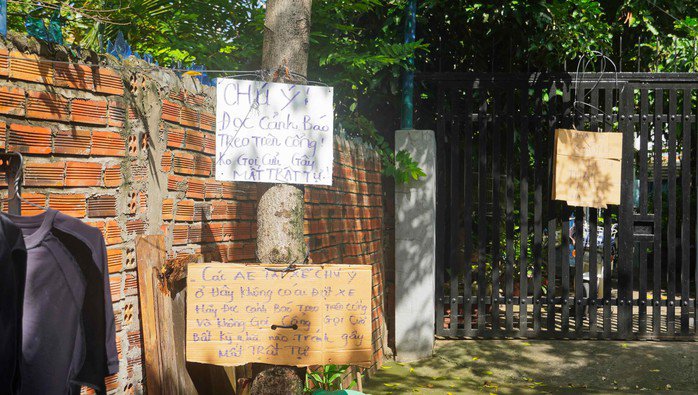 CHÚ Ý!
ĐỌC CẢNH BÁO
TREO TRÊN CỔNG!
KO GỌI CỬA GÂY
MẤT TRẬT TỰ!
CÁC AE TÀI XẾ CHÚ Ý
Ở ĐÂY KHÔNG CÓ AI ĐẶT XE
HÃY ĐỌC CẢNH BÁO TREO TRÊN CỔNG
VÀ KHÔNG GỌI CỔNG GỌI CỬA
BẤT KỲ NHÀ NÀO. TRÁNH GÂY
MẤT TRẬT TỰ